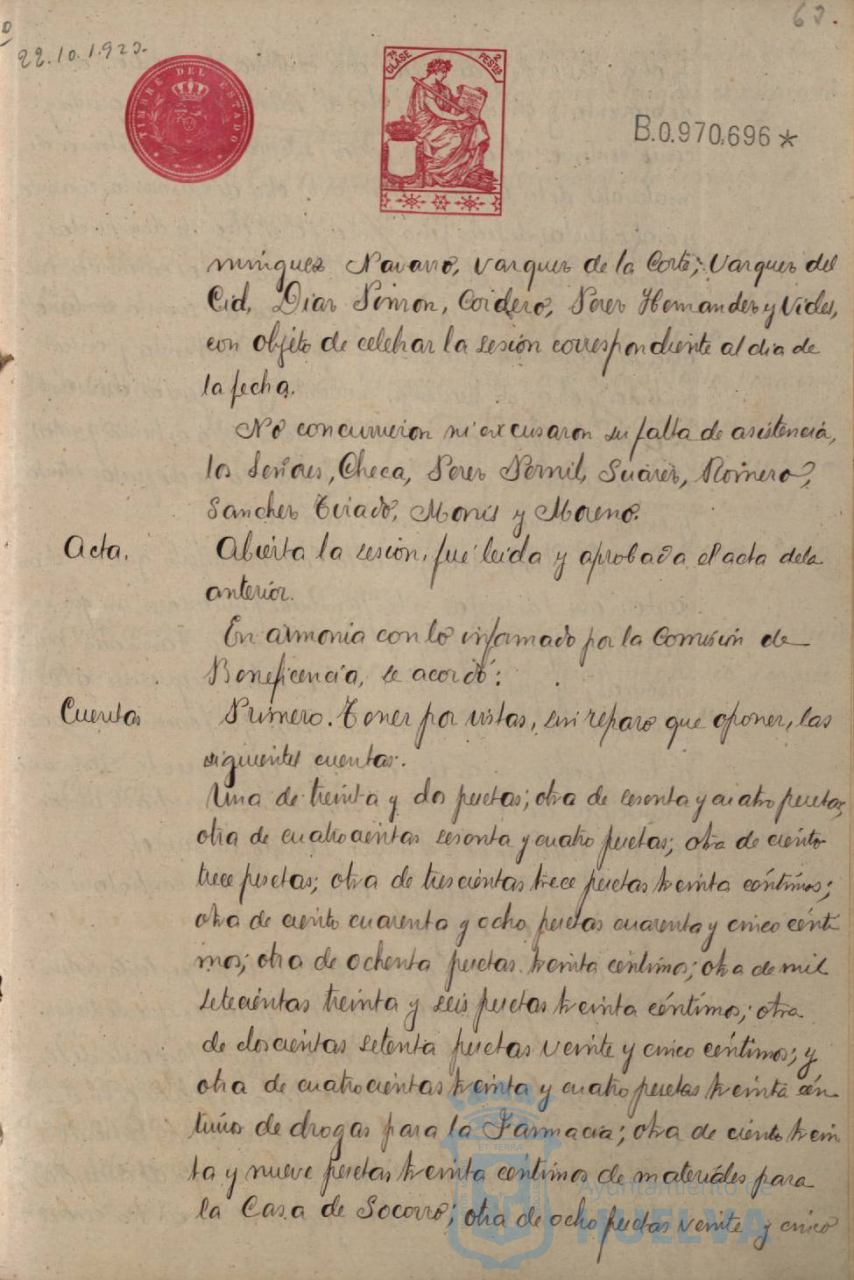 63.
22.10.1.923.
TIMBRE DEL ESTADO
7ª CLASE
2 PESTAS
B.0.970.696*
minguez Navarro, Vazquez de la Corte; Vazquez del
Cid, Diaz Pinzon, Cordero, Perez Hernandez y Vides,
con objeto de celebrar la sesión correspondiente al dia de
la fecha.
No concurrieron ni excusaron su falta de asistencia,
los Señores, Checa, Perez Pernil, Suárez, Romero,
Sanchez Tirado, Monís y Moreno.
Acta.
Abierta la sesión, fué leida y aprobada el acta dela
anterior.
En armonia con lo informado por la Comisión de
Beneficencia, se acordó:
Cuentas
Primero. Tener por vistas, sin reparo que oponer, las
siguientes cuentas.
Una de treinta y dos pesetas; otra de sesenta y cuatro pesetas;
otra de cuatrocientas sesenta y cuatro pesetas; otra de ciento
trece pesetas; otra de trescientas trece pesetas treinta céntimos;
otra de ciento cuarenta y ocho pesetas cuarenta y cinco cénti
mos; otra de ochenta pesetas treinta centimos; otra de mil
setecientas treinta y seis pesetas treinta céntimos; otra
de doscientas setenta pesetas veinte y cinco céntimos; y
otra de cuatrocientas treinta y cuatro pesetas treinta cén
timos de drogas para la Farmacia; otra de ciento trein
ta y nueve pesetas treinta céntimos de materiales para
la Casa de Socorro; otra de ocho pesetas veinte y cinco
Ayuntamiento de
HUELVA